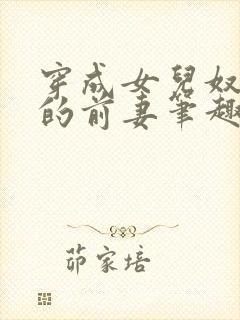 穿成女兒奴
的前妻筆趣
茆家培